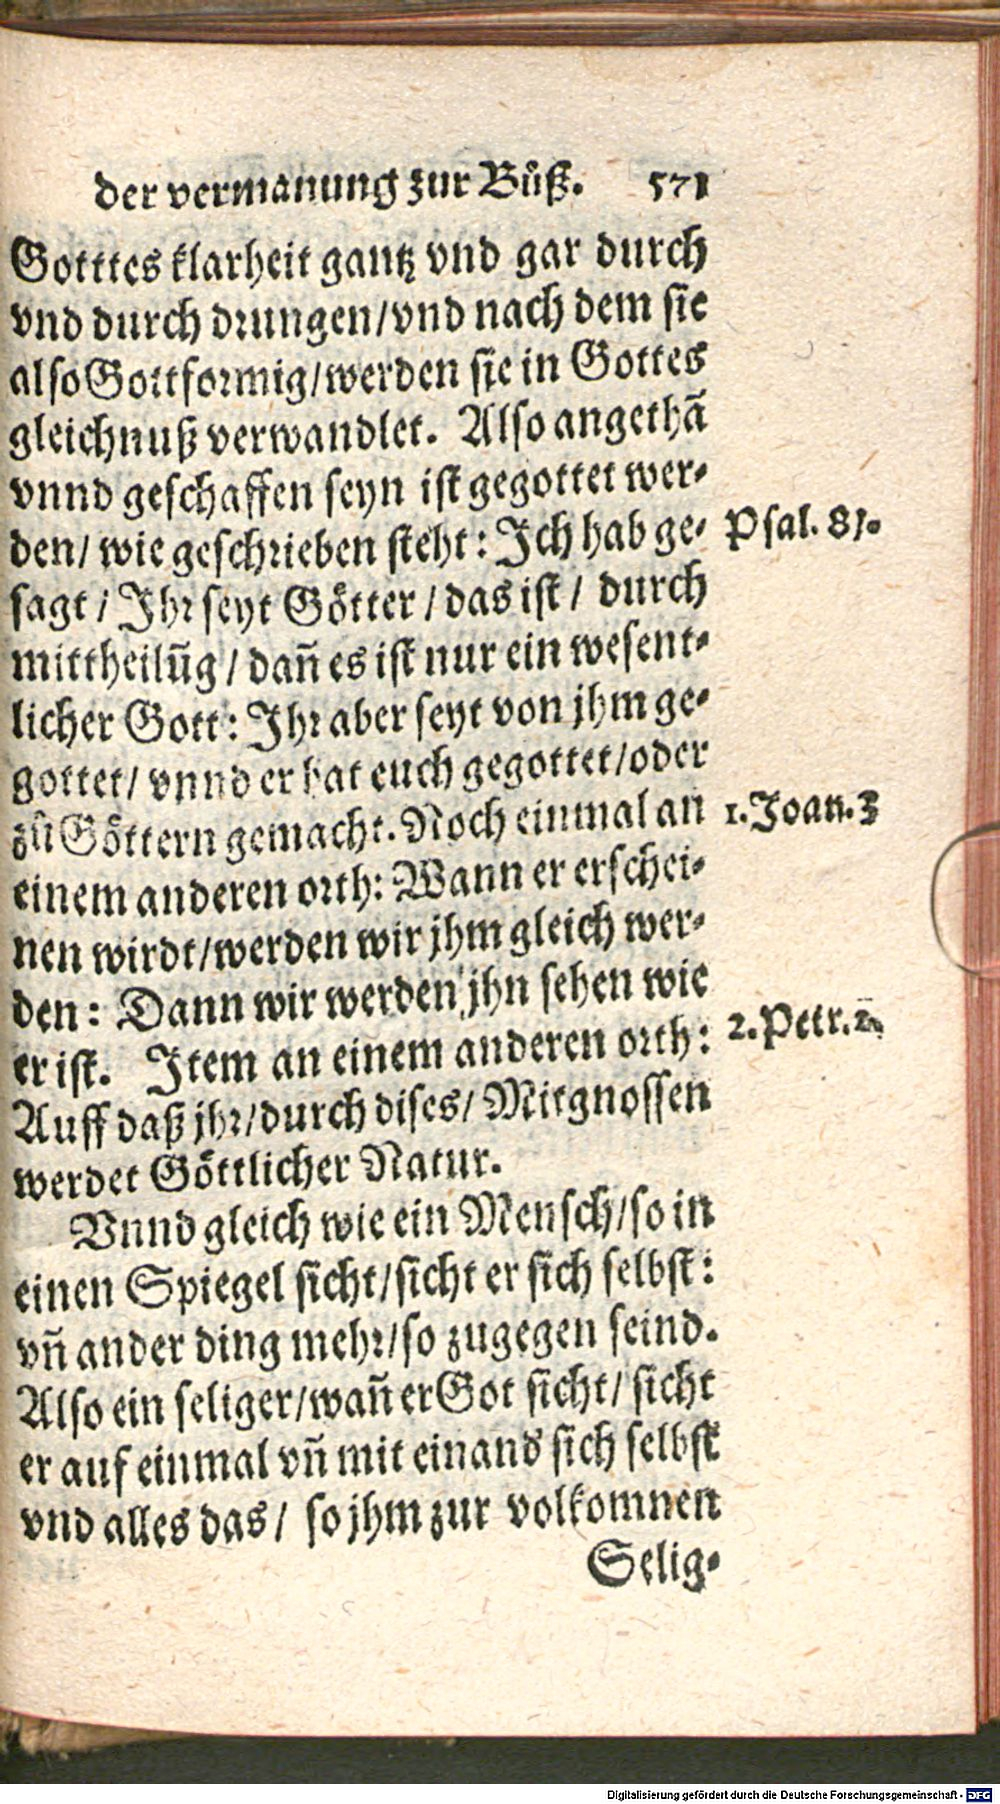 der vermanung zur Bůß. 571
Gotttes klarheit gantz vnd gar durch
vnd durch drungen/vnd nach dem sie
also Gottformig/werden sie in Gottes
gleichnuß verwandlet. Also angethã
vnnd geschaffen seyn ist gegottet wer-
den/ wie geschrieben steht: Ich hab ge-
Psal. 81.
sagt / Ihr seyt Götter / das ist / durch
mittheilũg / dañ es ist nur ein wesent-
licher Gott: Ihr aber seyt von jhm ge-
gottet/ vnnd er hat euch gegottet/oder
zů Göttern gemacht. Noch einmal an
1. Joan. 3
einem anderen orth: Wann er erschei-
nen wirdt/werden wir jhm gleich wer-
den: Dann wir werden jhn sehen wie
er ist. Item an einem anderen orth:
2. Petr.
Auff daß jhr/durch dises/ Mitgnossen
werdet Göttlicher Natur.
Vnnd gleich wie ein Mensch/so in
einen Spiegel sicht/sicht er sich selbst:
vñ ander ding mehr/so zugegen seind.
Also ein seliger/wañ er Got sicht/ sicht
er auf einmal vñ mit einand sich selbst
vnd alles das/ so jhm zur volkomnen
Selig-
Digitalisierung gefördert durch die Deutsche Forschungsgemeinschaft - DFG